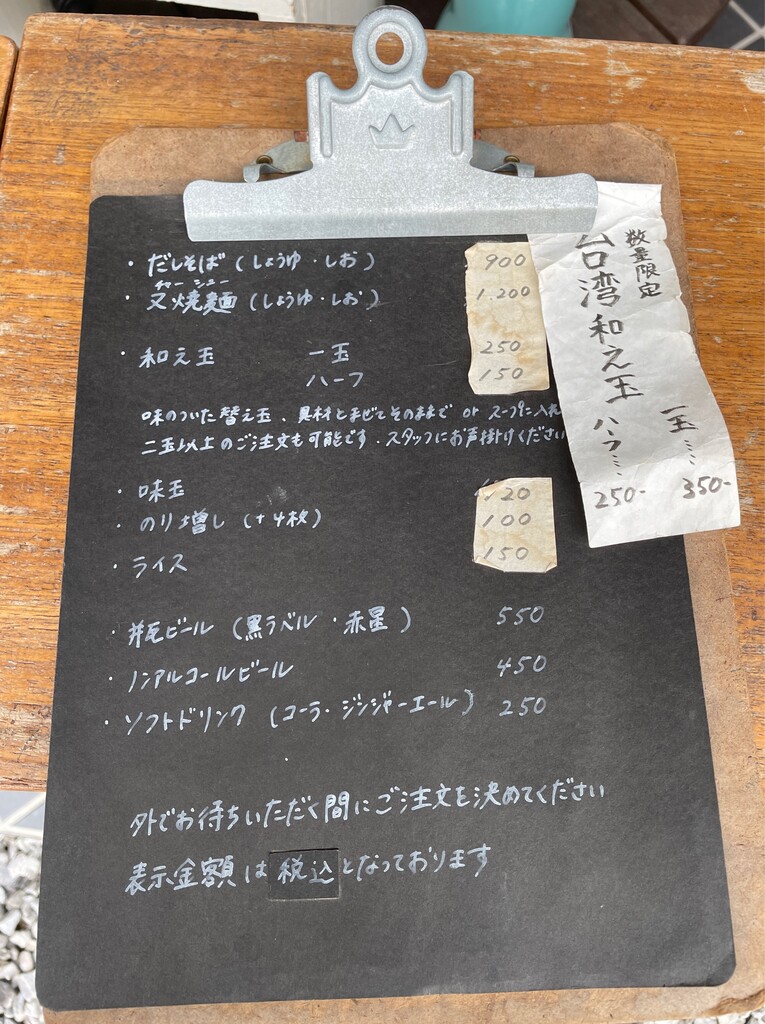 ・だしそば (しょうゆ・しお) 900
チャーシュー
・叉焼麺 (しょうゆ・しお) 1.200
・和え玉 一玉 250
ハーフ 150
味のついた替え玉、具材とまぜてそのままで or スープに入れ
二玉以上のご注文も可能です.スタッフにお声掛けください
・味玉 120
・のり増し (+4枚) 100
・ライス 150
・瓶ビール (黒ラベル・赤星) 550
・ノンアルコールビール 450
・ソフトドリンク (コーラ・ジンジャーエール) 250
外でお待ちいただく間にご注文を決めてください
表示金額は税込となっております
数量限定
台湾和え玉
一玉…350-
ハーフ…250-